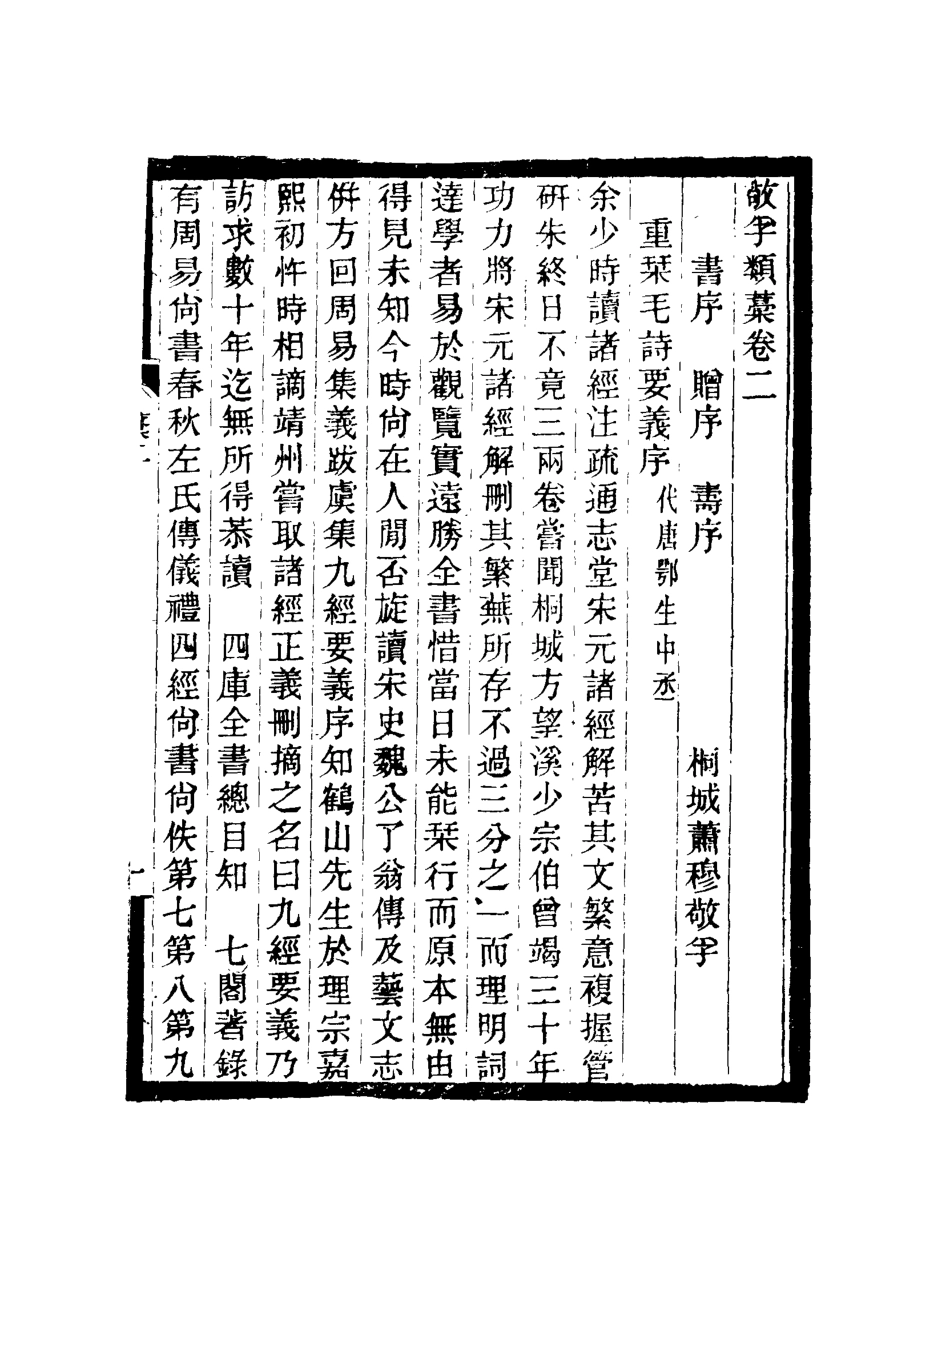 敬孚類藁卷二
書序　贈序　壽序　桐城蕭穆敬孚
重栞毛詩要義序 代唐鄂生中丞
余少時讀諸經注疏通志堂宋元諸經解苦其文繁意複握管
研朱終日不竟三兩卷嘗聞桐城方望溪少宗伯曾竭三十年
功力將宋元諸經解刪其繁蕪所存不過三分之一而理明詞
達學者易於觀覽實遠勝全書惜當日未能栞行而原本無由
得見未知今時尙在人閒否旋讀宋史魏公了翁傳及藝文志
倂方回周易集義跋虞集九經要義序知鶴山先生於理宗嘉
熙初忤時相謫靖州嘗取諸經正義刪摘之名曰九經要義乃
訪求數十年迄無所得恭讀　四庫全書總目知　七閣著錄
有周易尙書春秋左氏傳儀禮四經尙書尙佚第七第八第九